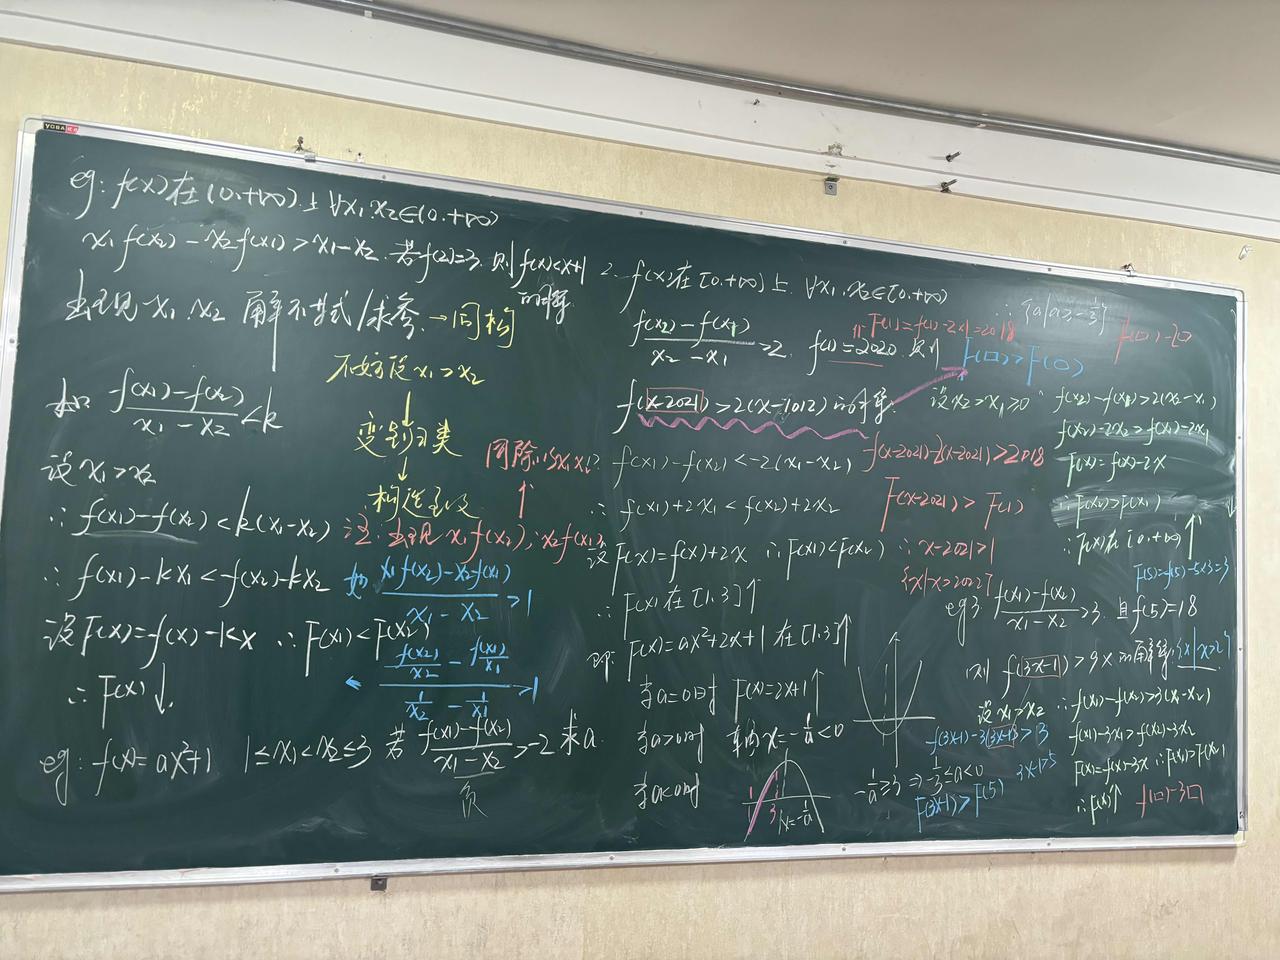 eg: f(x)在(0.+∞)上 ∀x₁ x₂∈(0.+∞)
x₁f(x₂)-x₂f(x₁)>x₁-x₂.若f(2)=3.则f(x)<x+1
的解.
出现x₁.x₂ 解不等式/求参.→同构
不妨设x₁>x₂
↓
变量归类
↓
构造函数
如: (f(x₁)-f(x₂))/(x₁-x₂)<k
设x₁>x₂
∴ f(x₁)-f(x₂)<k(x₁-x₂)
∴ f(x₁)-kx₁<f(x₂)-kx₂
设F(x)=f(x)-kx ∴F(x₁)<F(x₂)
∴ F(x)↓
同除以x₁x₂
↑
注:出现x₁f(x₂), x₂f(x₁)
如 (x₁f(x₂)-x₂f(x₁))/(x₁-x₂)>1
← (f(x₂)/x₂-f(x₁)/x₁)/(1/x₂-1/x₁)>1
eg: f(x)=ax²+1 1≤x₁<x₂≤3 若 (f(x₁)-f(x₂))/(x₁-x₂)>-2 求a
负
2. f(x)在[0.+∞)上 ∀x₁.x₂∈[0.+∞)
(f(x₂)-f(x₁))/(x₂-x₁)>2. f(1)=2020 则
f(x-2021)>2(x-1012)的解.
F(1)=f(1)-2×1=2018
F(□)>F(○)
f(x₁)-f(x₂)<-2(x₁-x₂)
∴ f(x₁)+2x₁<f(x₂)+2x₂
设F(x)=f(x)+2x ∴F(x₁)<F(x₂)
∴ F(x)在[1.3]↑
即: F(x)=ax²+2x+1在[1.3]↑
当a=0时 F(x)=2x+1↑
当a>0时 x=-1/a<0
当a<0时
1 3 x=-1/a
-1/a≥3 ⇒-1/3≤a<0
∴{a|a≥-1/3}
f(□)-2□
f(x-2021)-2(x-2021)>2018
F(x-2021)>F(1)
∴ x-2021>1
{x|x>2022}
设x₂>x₁≥0 f(x₂)-f(x₁)>2(x₂-x₁)
f(x₂)-2x₂>f(x₁)-2x₁
F(x)=f(x)-2x
∴F(x₂)>F(x₁)
∴F(x)在[0.+∞)↑
F(5)=f(5)-5×3=3
eg3. (f(x₁)-f(x₂))/(x₁-x₂)>3 且f(5)=18
则f(3x-1)>9x的解集{x|x>2}
设x₁>x₂ ∴f(x₁)-f(x₂)>3(x₁-x₂)
f(x₁)-3x₁>f(x₂)-3x₂
F(x)=f(x)-3x ∴F(x₁)>F(x₂)
∴F(x)↑ f(□)-3□
f(3x-1)-3(3x-1)>3
F(3x-1)>F(5) 3x-1>5